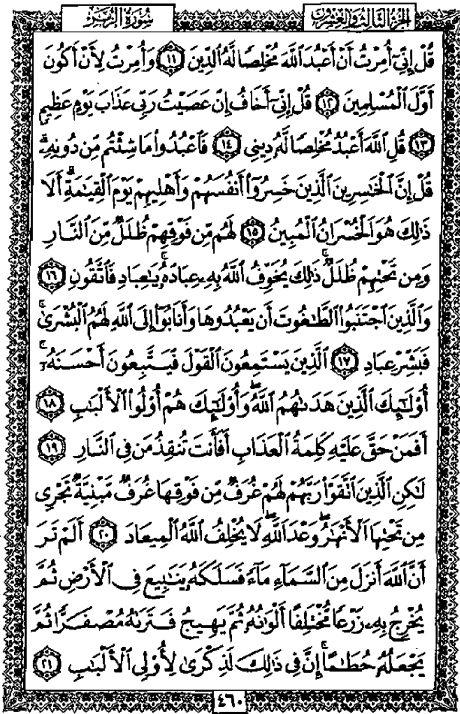 سُورَةُ الزُّمَرِ الجُزْءُ الثَّالِثُ وَالعِشْرُونَ
قُلْ إِنِّىٓ أُمِرْتُ أَنْ أَعْبُدَ ٱللَّهَ مُخْلِصًا لَّهُ ٱلدِّينَ ١١ وَأُمِرْتُ لِأَنْ أَكُونَ
أَوَّلَ ٱلْمُسْلِمِينَ ١٢ قُلْ إِنِّىٓ أَخَافُ إِنْ عَصَيْتُ رَبِّى عَذَابَ يَوْمٍ عَظِيمٍ
١٣ قُلِ ٱللَّهَ أَعْبُدُ مُخْلِصًا لَّهُۥ دِينِى ١٤ فَٱعْبُدُوا۟ مَا شِئْتُم مِّن دُونِهِۦ ۗ
قُلْ إِنَّ ٱلْخَٰسِرِينَ ٱلَّذِينَ خَسِرُوٓا۟ أَنفُسَهُمْ وَأَهْلِيهِمْ يَوْمَ ٱلْقِيَٰمَةِ ۗ أَلَا
ذَٰلِكَ هُوَ ٱلْخُسْرَانُ ٱلْمُبِينُ ١٥ لَهُم مِّن فَوْقِهِمْ ظُلَلٌ مِّنَ ٱلنَّارِ
وَمِن تَحْتِهِمْ ظُلَلٌ ۚ ذَٰلِكَ يُخَوِّفُ ٱللَّهُ بِهِۦ عِبَادَهُۥ ۚ يَٰعِبَادِ فَٱتَّقُونِ ١٦
وَٱلَّذِينَ ٱجْتَنَبُوا۟ ٱلطَّٰغُوتَ أَن يَعْبُدُوهَا وَأَنَابُوٓا۟ إِلَى ٱللَّهِ لَهُمُ ٱلْبُشْرَىٰ ۚ
فَبَشِّرْ عِبَادِ ١٧ ٱلَّذِينَ يَسْتَمِعُونَ ٱلْقَوْلَ فَيَتَّبِعُونَ أَحْسَنَهُۥٓ ۚ
أُو۟لَٰٓئِكَ ٱلَّذِينَ هَدَىٰهُمُ ٱللَّهُ ۖ وَأُو۟لَٰٓئِكَ هُمْ أُو۟لُوا۟ ٱلْأَلْبَٰبِ ١٨
أَفَمَنْ حَقَّ عَلَيْهِ كَلِمَةُ ٱلْعَذَابِ أَفَأَنتَ تُنقِذُ مَن فِى ٱلنَّارِ ١٩
لَٰكِنِ ٱلَّذِينَ ٱتَّقَوْا۟ رَبَّهُمْ لَهُمْ غُرَفٌ مِّن فَوْقِهَا غُرَفٌ مَّبْنِيَّةٌ تَجْرِى
مِن تَحْتِهَا ٱلْأَنْهَٰرُ ۖ وَعْدَ ٱللَّهِ ۖ لَا يُخْلِفُ ٱللَّهُ ٱلْمِيعَادَ ٢٠ أَلَمْ تَرَ
أَنَّ ٱللَّهَ أَنزَلَ مِنَ ٱلسَّمَآءِ مَآءً فَسَلَكَهُۥ يَنَٰبِيعَ فِى ٱلْأَرْضِ ثُمَّ
يُخْرِجُ بِهِۦ زَرْعًا مُّخْتَلِفًا أَلْوَٰنُهُۥ ثُمَّ يَهِيجُ فَتَرَىٰهُ مُصْفَرًّا ثُمَّ
يَجْعَلُهُۥ حُطَٰمًا ۚ إِنَّ فِى ذَٰلِكَ لَذِكْرَىٰ لِأُو۟لِى ٱلْأَلْبَٰبِ ٢١
٤٦٠